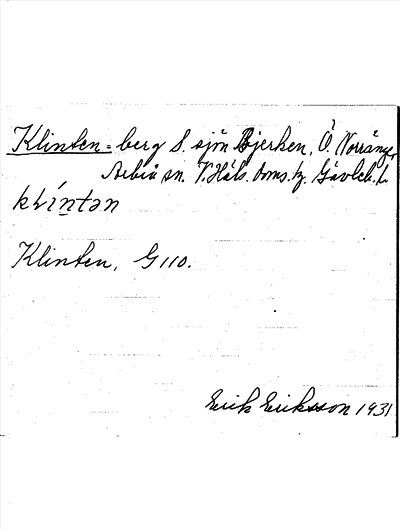 Klinten = berg S. sjön Bjerken, Ö. Norränge,
Arbrå sn. V. Häls. doms.
Klinten, G110.
Erik Eriksson 1931